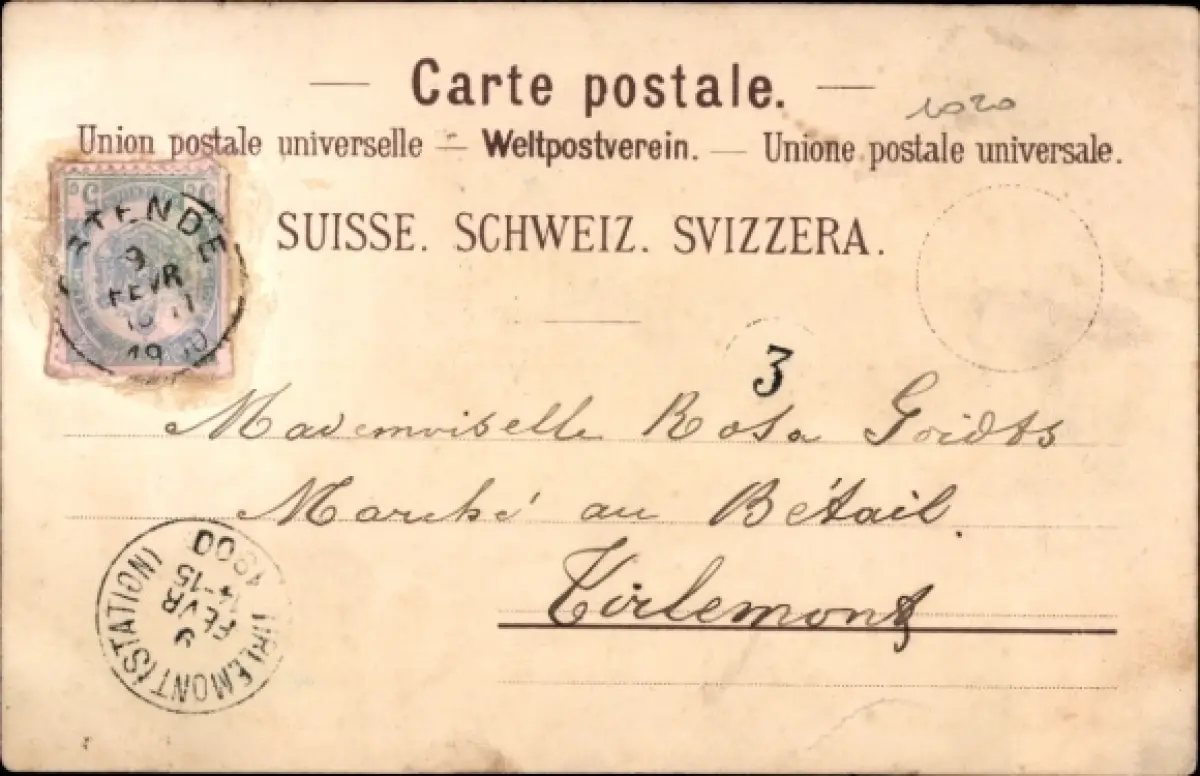 Carte postale.
1020
Union postale universelle — Weltpostverein. — Unione postale universale.
SUISSE. SCHWEIZ. SVIZZERA.
OSTENDE
9
FEVR
19 00
3
Mademoiselle Rosa Goidts
Marché au Bétail.
Tirlemont
TIRLEMONT (STATION)
9
FEVR
14-15
1900